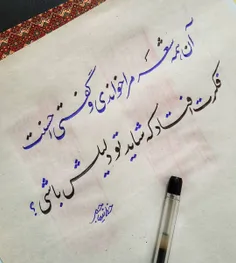 آن همه شعر مرا خواندی و گفتی احسنت
فکرت افتاد که شاید تو دلیلش باشی؟